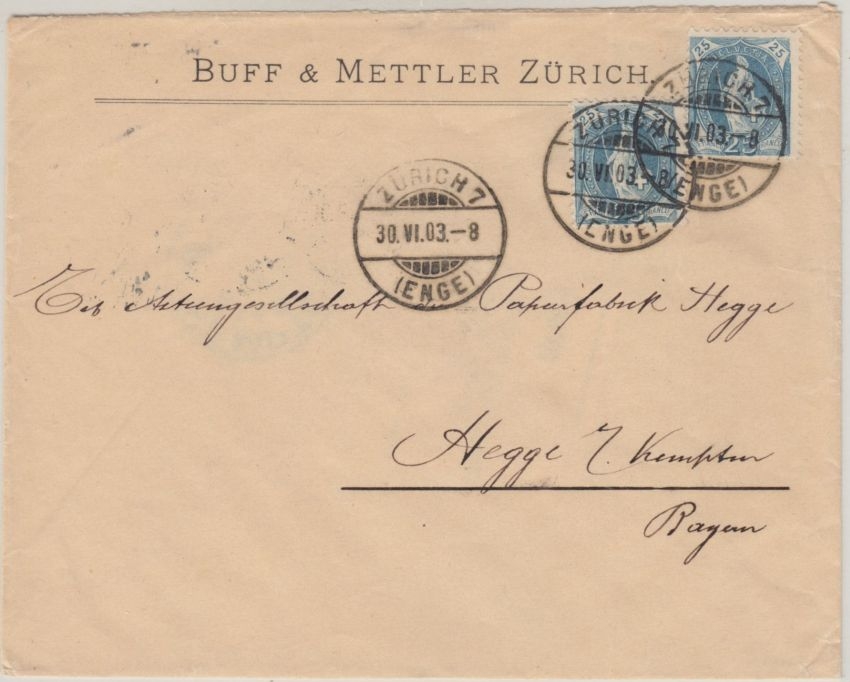 BUFF & METTLER ZÜRICH.
25 HELVETIA 25
ZÜRICH 7
30.VI.03.-8
(ENGE)
25
FRANCO
ZÜRICH
30.VI.03.-8
(ENGE)
ZÜRICH 7
30.VI.03.-8
(ENGE)
Actiengesellschaft der Papierfabrik Hegge
Hegge b/ Kempten
Bayern